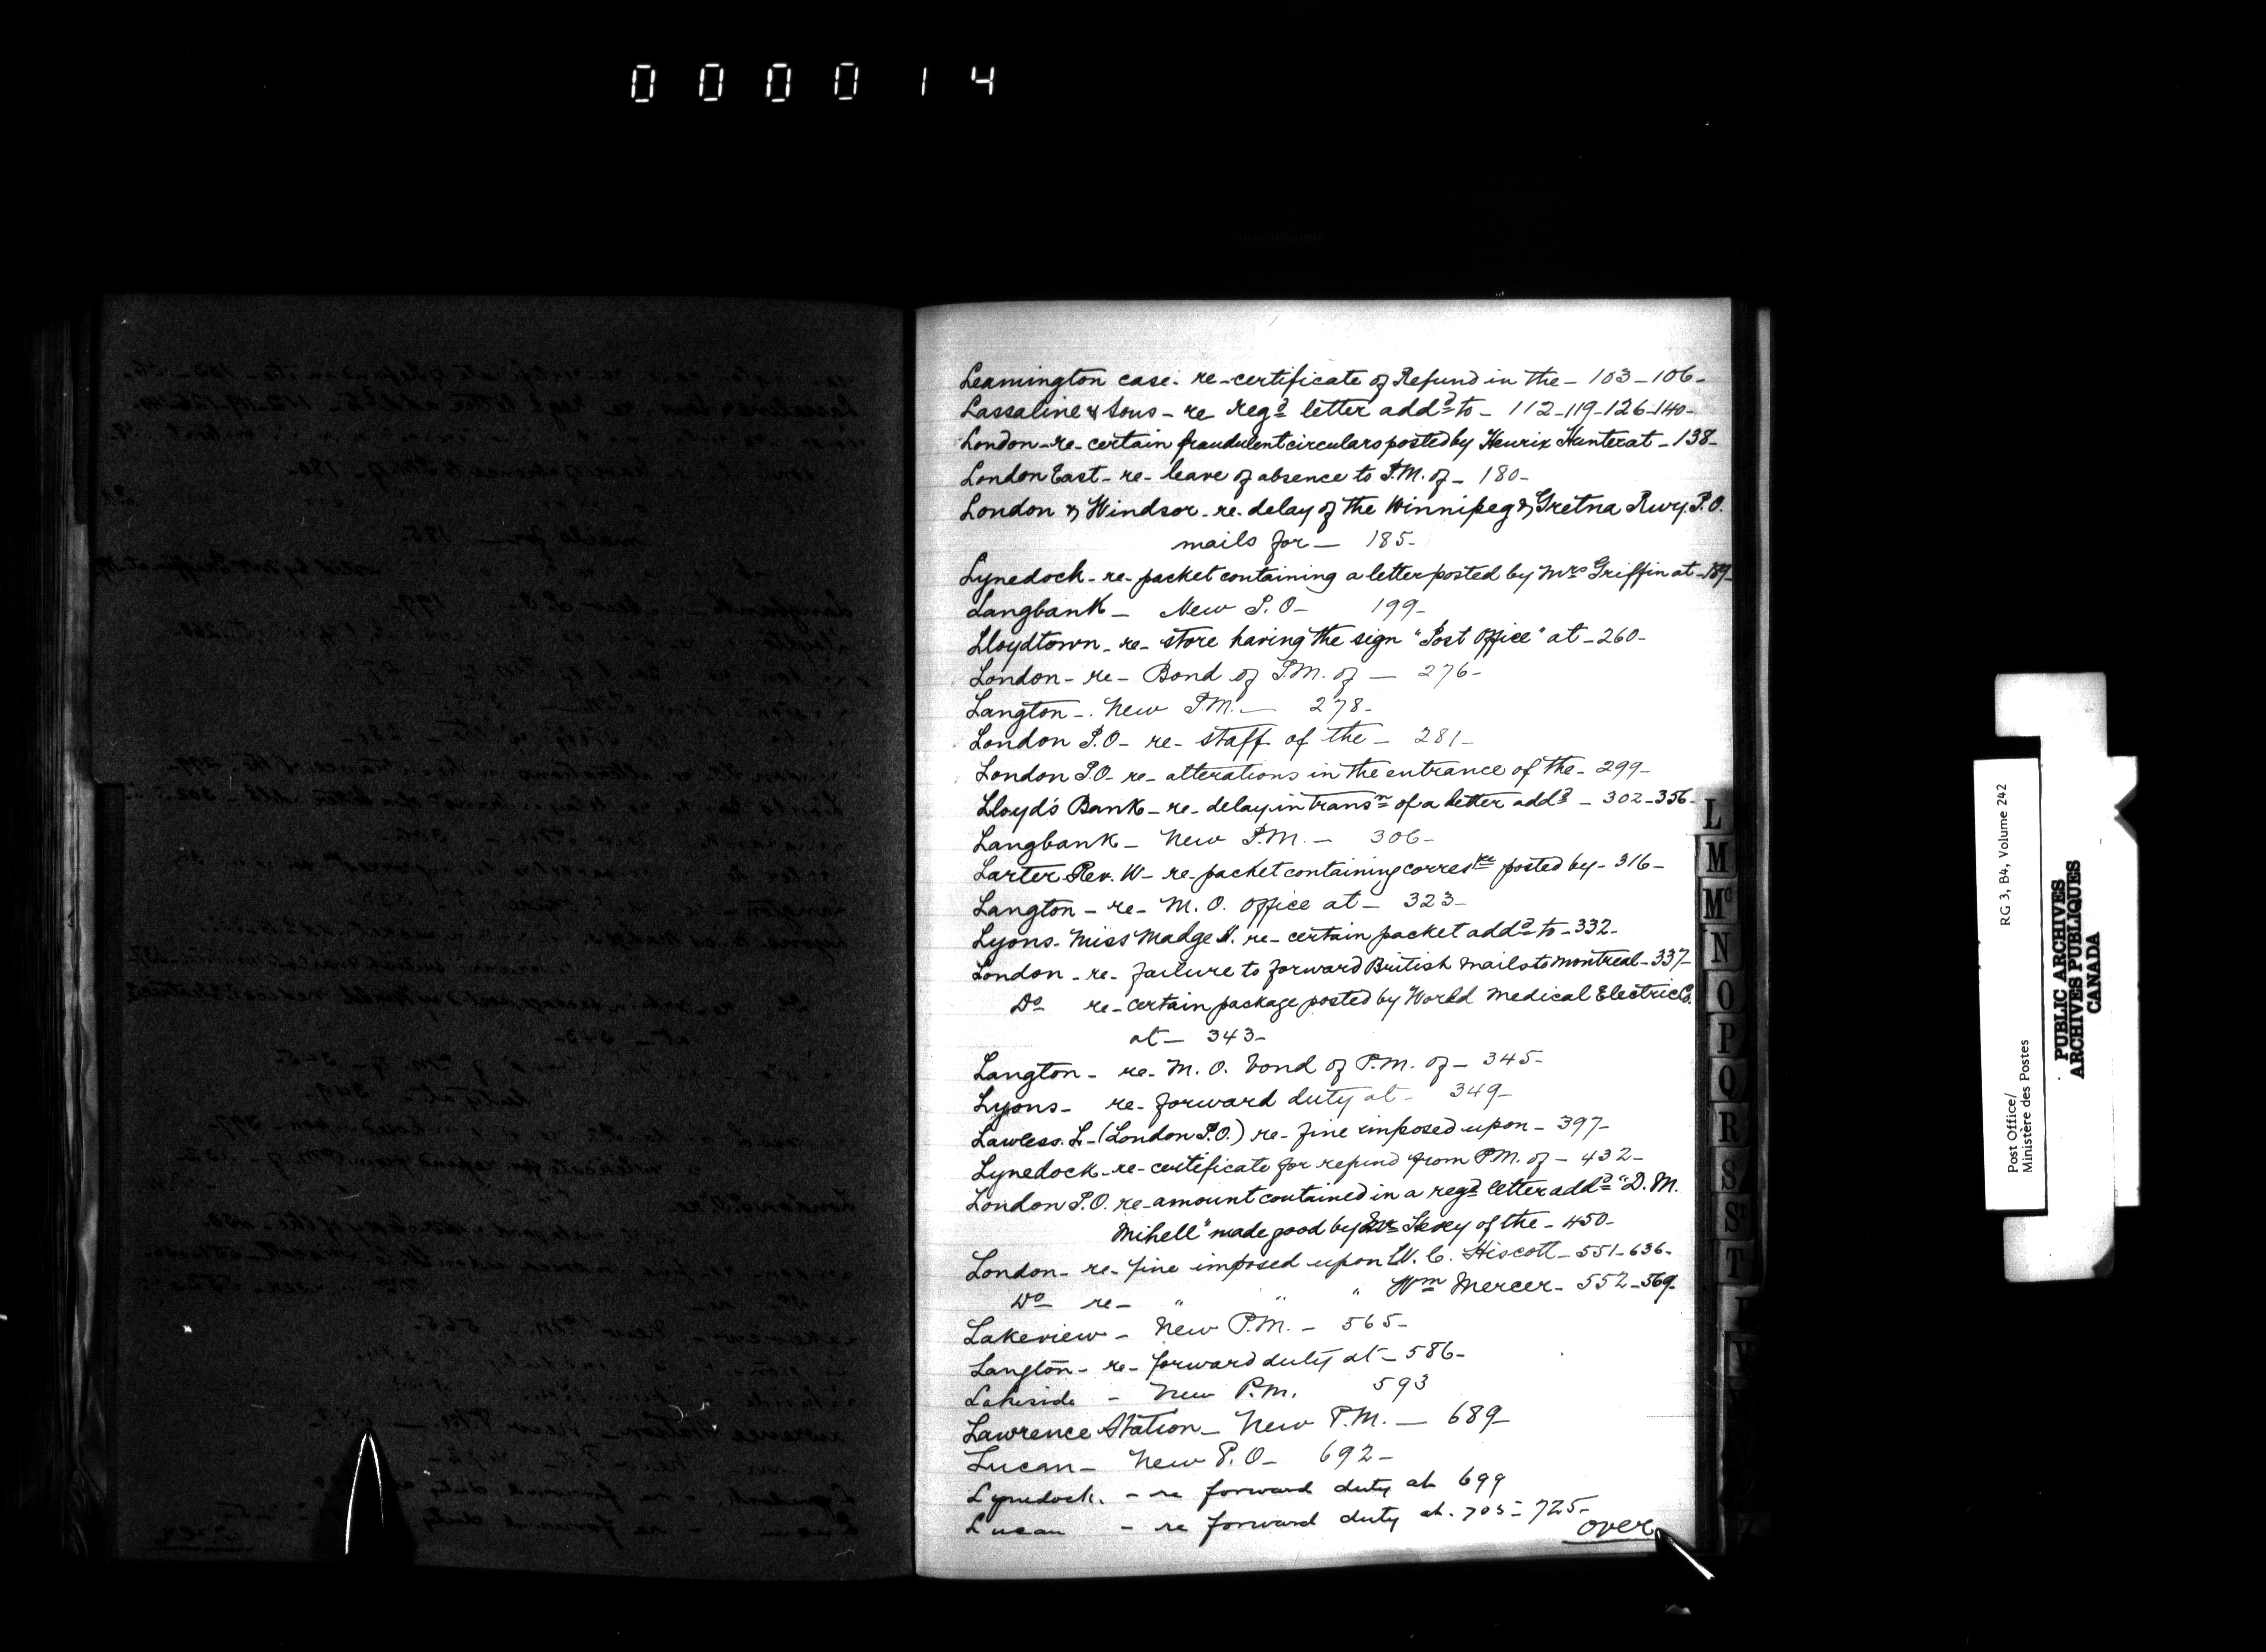 000014
Leamington case. re-certificate of Refund in the - 103 - 106 -
Lassaline & Sons - re regd letter addd to - 112 - 119 - 126 - 140 -
London - re - certain fraudulent circulars posted by Henrix Hunter at - 138 -
London East - re - leave of absence to P.M. of - 180 -
London & Windsor - re - delay of the Winnipeg & Gretna Rwy. P.O.
mails for - 185 -
Lynedoch - re - packet containing a letter posted by Mrs Griffin at - 189
Langbank - New P.O - 199 -
Lloydtown - re - store having the sign "Post Office" at - 260 -
London - re - Bond of P.M. of - 276 -
Langton - New P.M. - 278 -
London P.O - re - staff of the - 281 -
London P.O - re - alterations in the entrance of the - 299 -
Lloyd's Bank - re - delay in transn of a letter addd - 302 - 356 -
Langbank - New P.M. - 306 -
Larter Rev. W - re - packet containing corresce posted by - 316 -
Langton - re - M.O. Office at - 323 -
Lyons - Miss Madge re - certain packet addd to - 332 -
London - re - failure to forward British mails to Montreal - 337 -
Do re - certain package posted by World Medical Electric Co.
at - 343 -
Langton - re - M.O. bond of P.M. of - 345 -
Lyons - re - forward duty at - 349 -
Lawless. L - (London P.O.) re - fine imposed upon - 397 -
Lynedock - re - certificate for refund from P.M. of - 432 -
London P.O. re - amount contained in a regd letter addd "D. M.
Mihell" made good by of the - 450 -
London - re - fine imposed upon W. C. Hiscott - 551 - 636 -
Do re - " " " Wm Mercer - 552 - 569 -
Lakeview - New P.M. - 565 -
Langton - re - forward duty at - 586 -
Lakeside - New P.M. 593
Lawrence Station - New P.M. - 689 -
Lucan - New P.O - 692 -
Lynedock. - re forward duty at 699
Lucan - re forward duty at. 703 - 725 -
over
L
M
Mc
N
O
P
Q
R
S
St
T
RG 3, B4, Volume 242
Post Office/
Ministère des Postes
PUBLIC ARCHIVES
ARCHIVES PUBLIQUES
CANADA